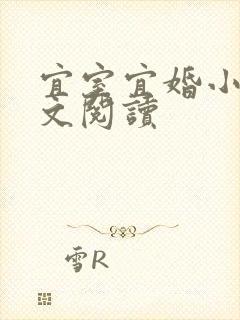 宜室宜婚小
文閱讀
雪R